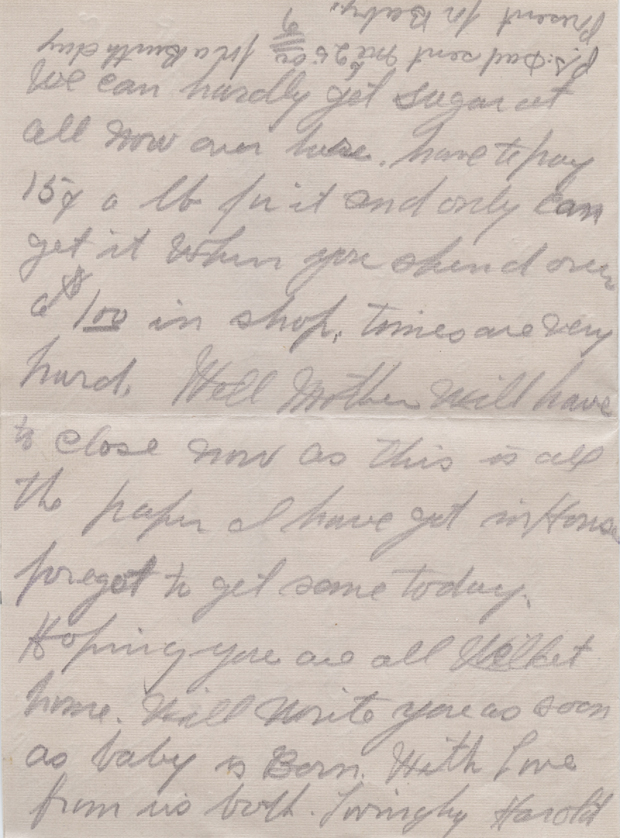 We can hardly get sugar at
all now over here. have to pay
15¢ a lb for it and only can
get it when you spend over
a $1.00 in shop, times are very
hard. Well Mother will have
to close now as this is all
the paper I have got in House
foregot to get some today.
Hoping you are all well at
home. Will write you as soon
as baby is Born. With Love
from us both. Lovingly Harold
P.S. Dad sent me $25.00 for a Birthday
Present for Baby.